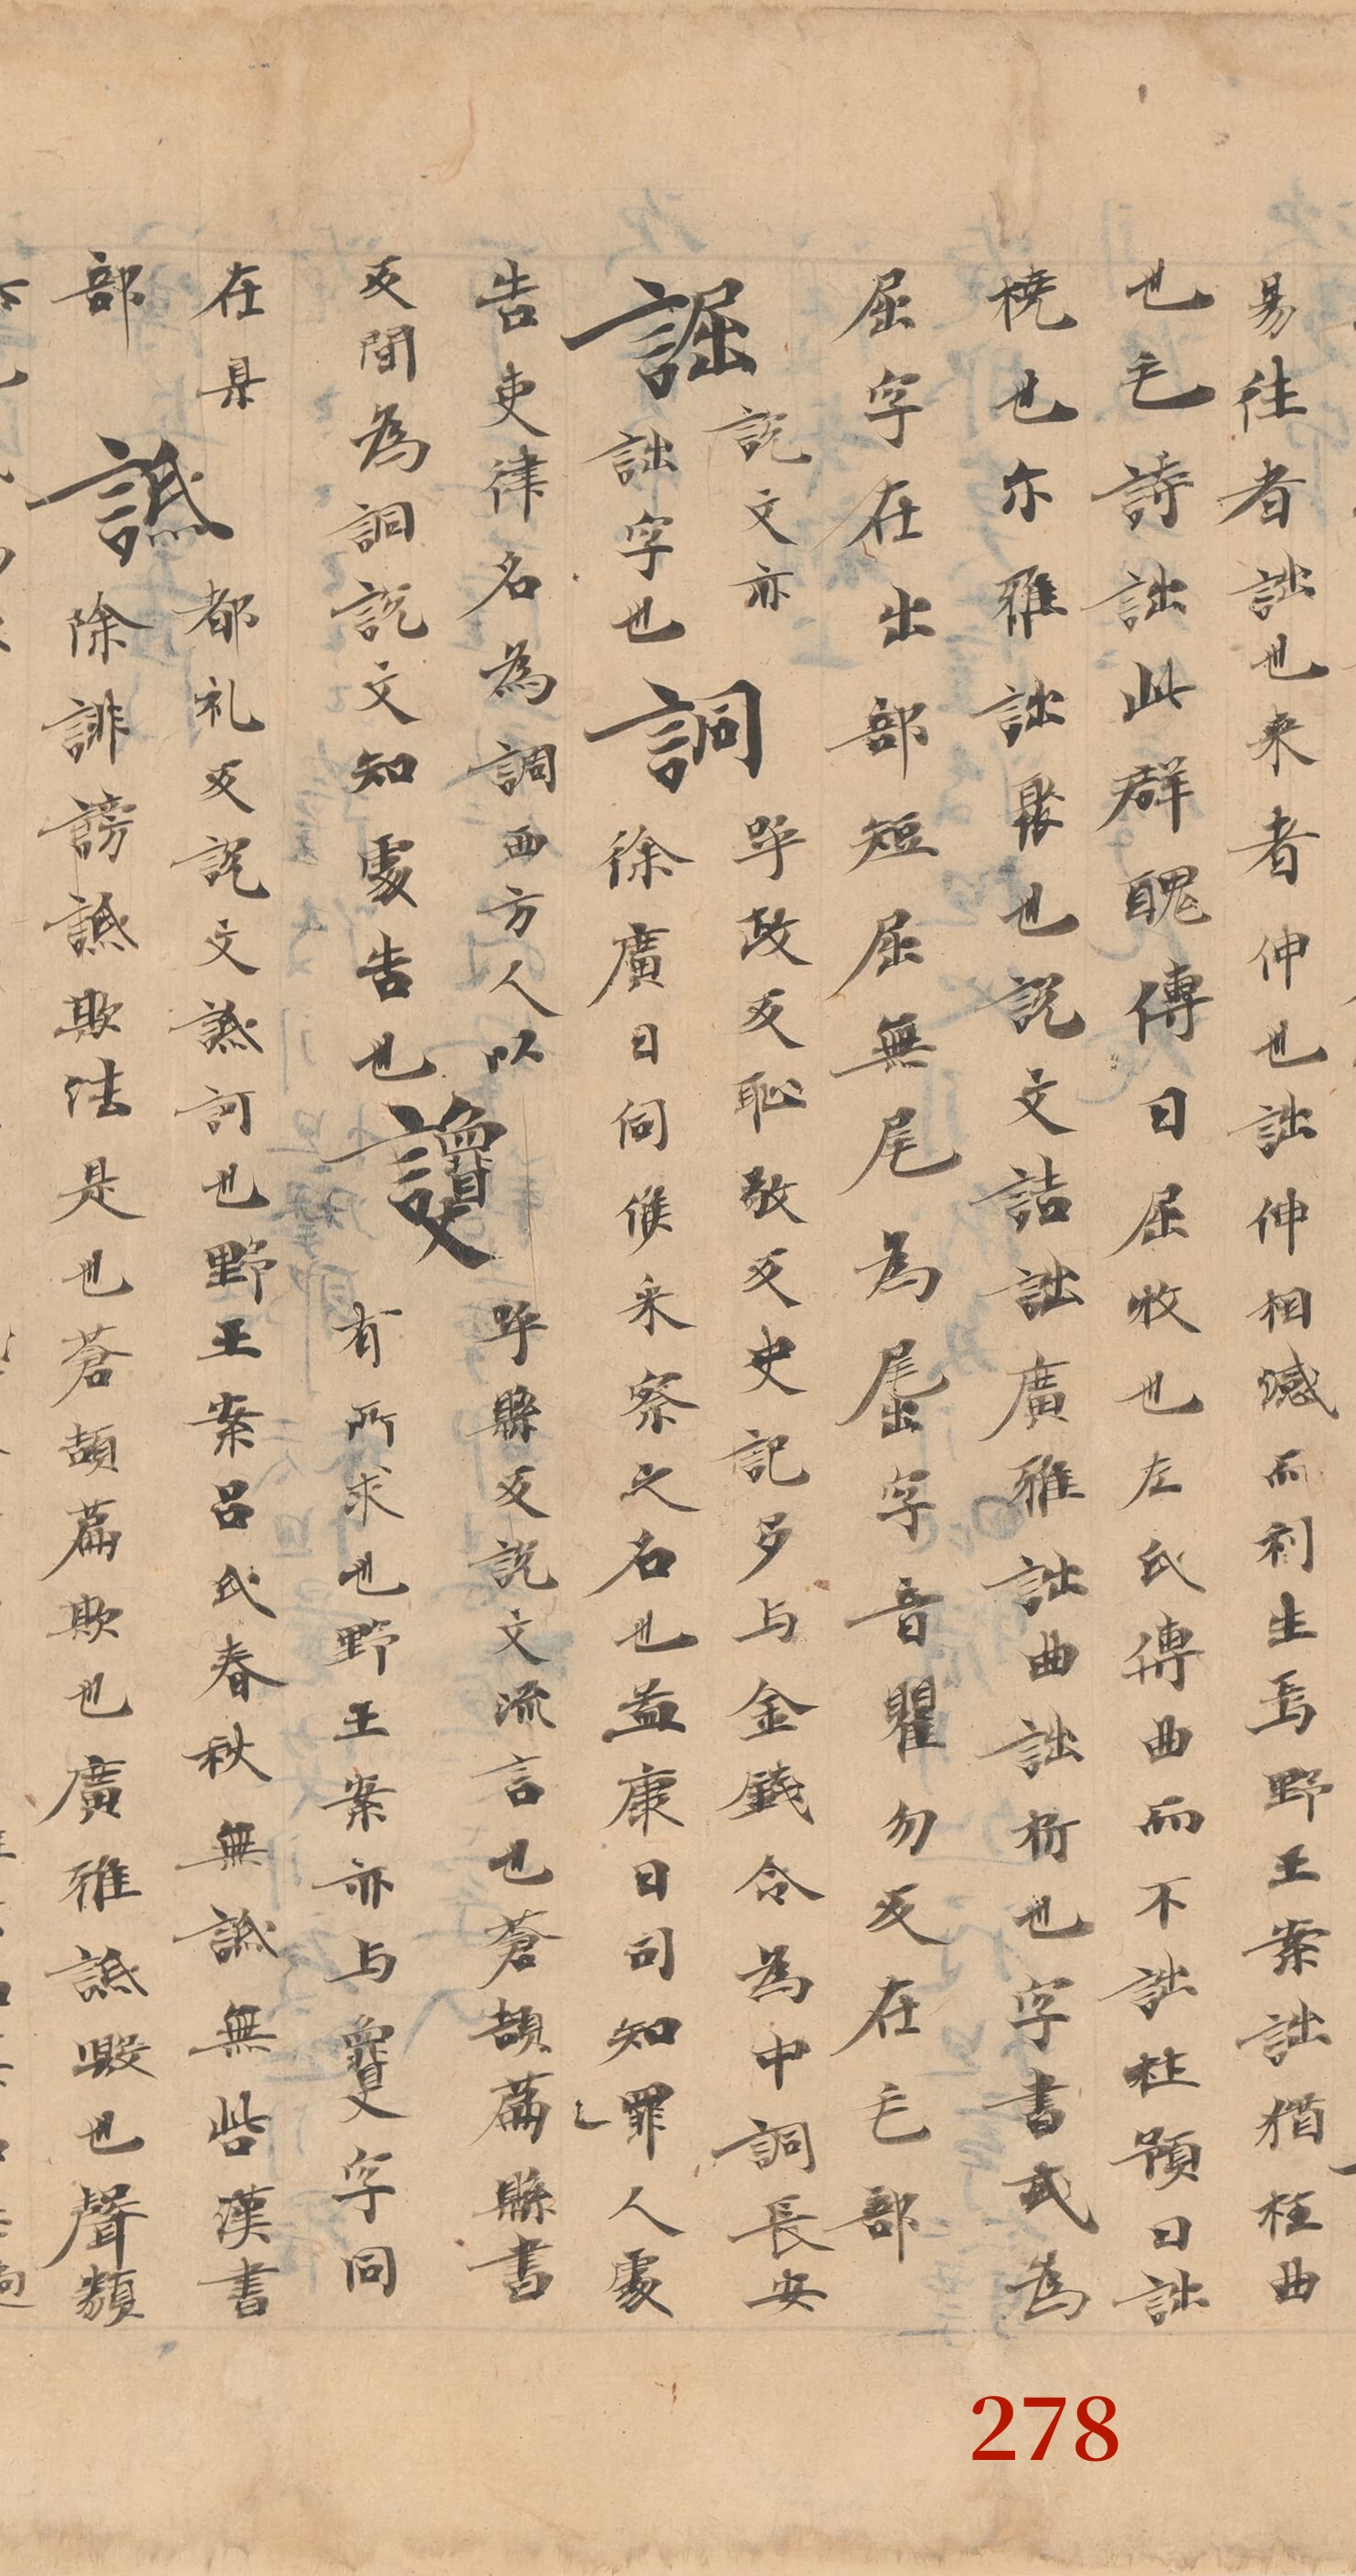 易往者詘也来者伸也詘伸相憾而利生焉野王案詘猶枉曲
也毛詩詘此群醜傳曰屈收也左氏傳曲而不詘杜預曰詘
橈也尓雅詘聚也說文詰詘廣雅詘曲詘折也字書或為
屈字在出部短屈無尾為𡲬字音瞿勿反在毛部
誳說文亦詘字也詗呼政反恥敬反史記多与金錢令為中詗長安
徐廣曰伺候采察之名也孟康曰司知罪人處
告吏律名為調西方人以
反間為詗說文知處告也讂呼縣反說文流言也蒼頡篇縣書
有所求也野王案亦与敻字同
在㫗部䛳都礼反說文䛳訶也野王案呂氏春秋無䛳無呰漢書
除誹謗䛳欺法是也蒼頡篇欺也廣雅䛳毀也聲類
278